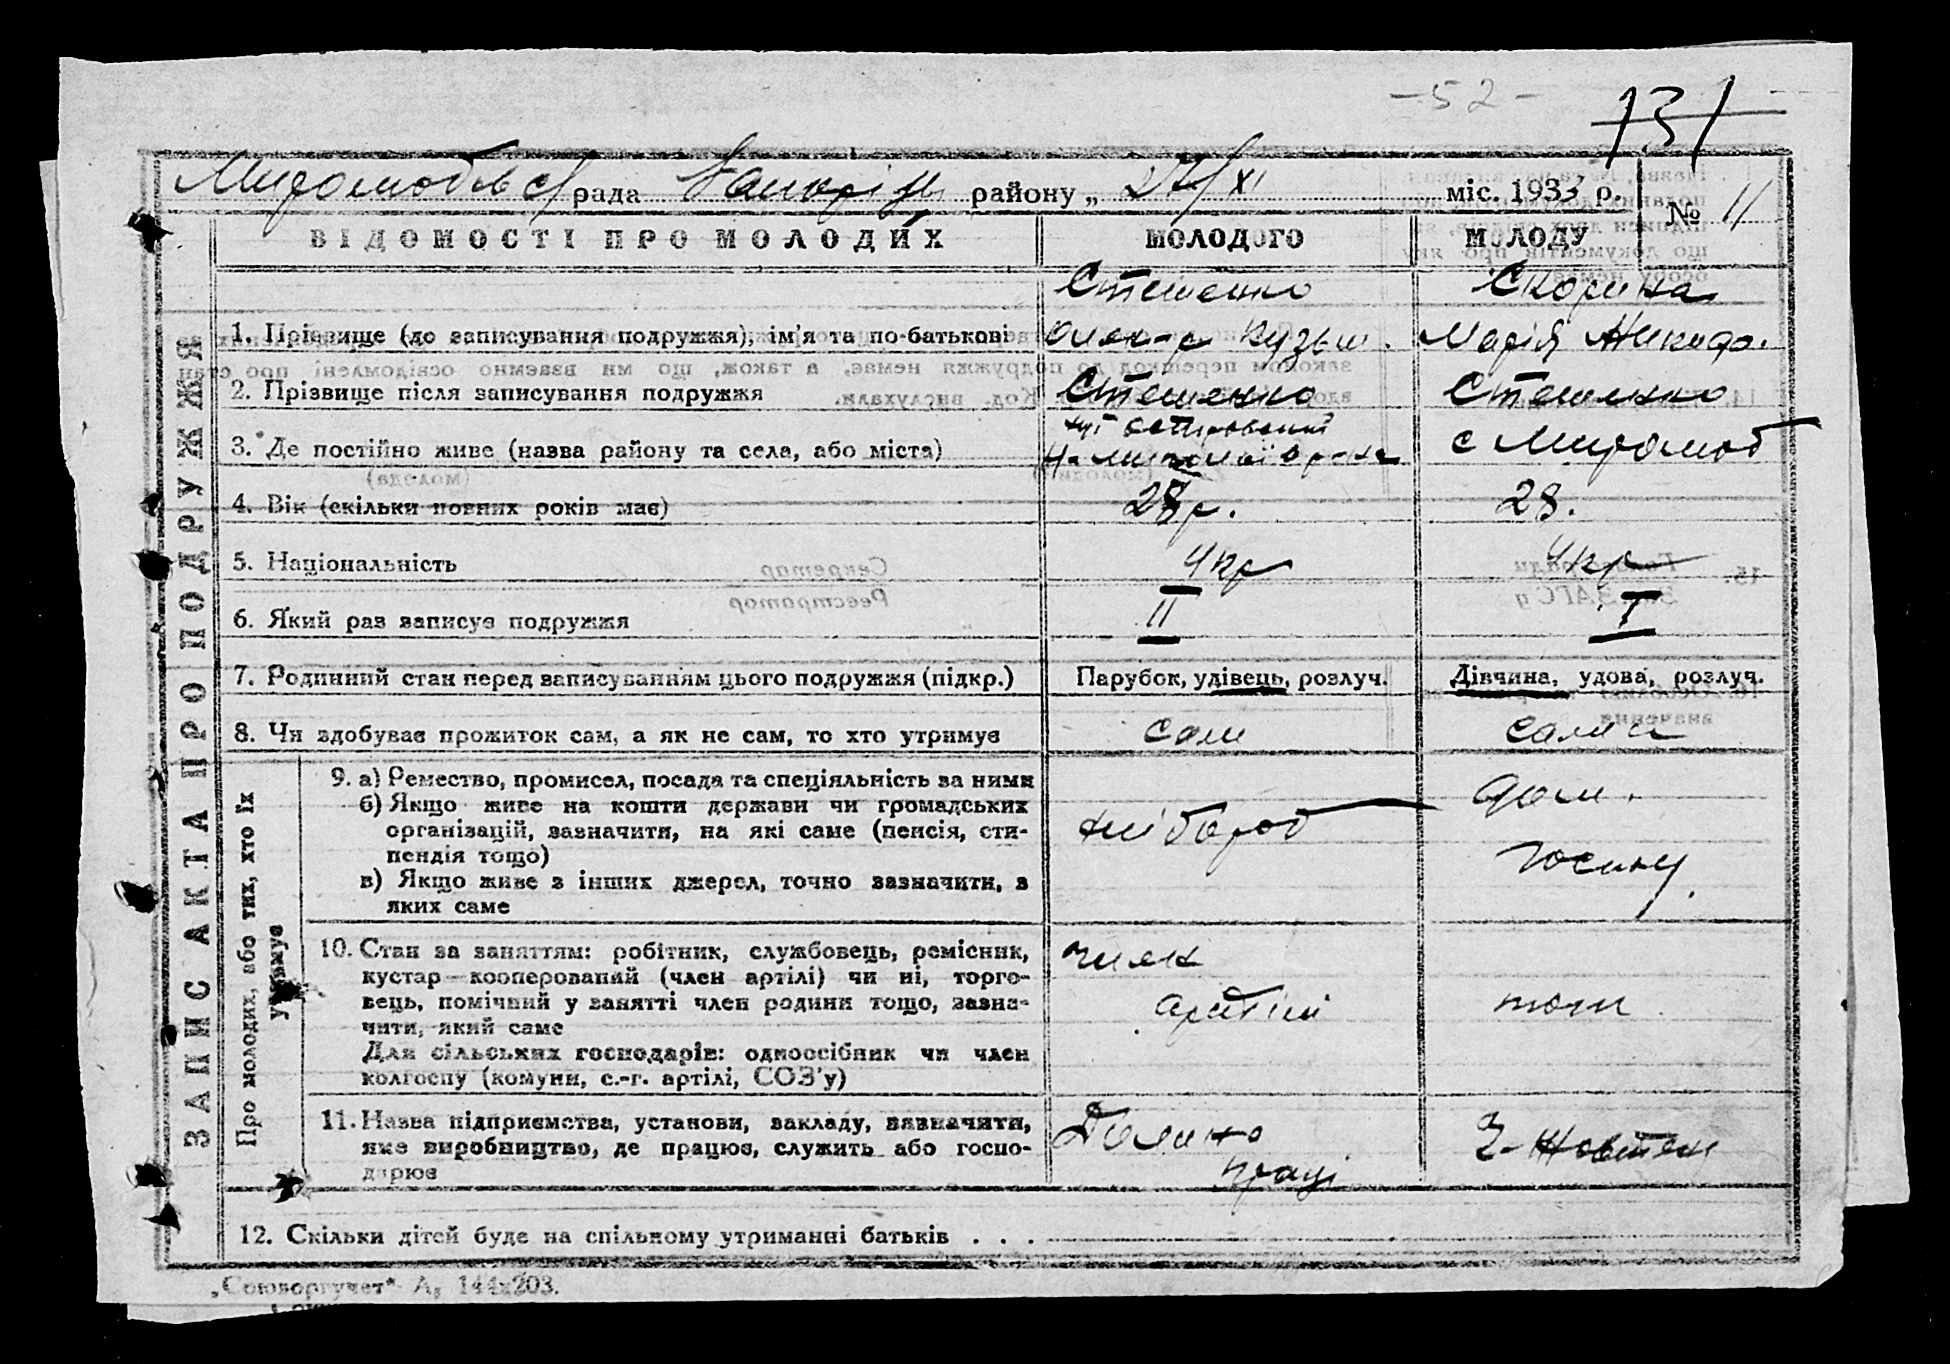 - 52 -
131
Миролюбівс/рада району „ 27/XI міс. 1933 р. № 11
ВІДОМОСТІ ПРО МОЛОДИХ МОЛОДОГО МОЛОДУ
ЗАПИС АКТА ПРО ПОДРУЖЖЯ
Стешенко Скорина
1. Прізвище (до записування подружжя), ім'я та по-батькові Олек-р Кузьм. Марія Никифо.
2. Прізвище після записування подружжя Стешенко Стешенко
3. Де постійно живе (назва району та села, або міста) с Миролюб
4. Вік (скільки повних років має) 28 р. 28.
5. Національність Укр Укр
6. Який раз записує подружжя II I
7. Родинний стан перед записуванням цього подружжя (підкр.) Парубок, удівець, розлуч. Дівчина, удова, розлуч.
8. Чи здобуває прожиток сам, а як не сам, то хто утримує сам сама
Про молодих, або тих, хто їх утримує
9. а) Ремество, промисел, посада та спеціяльність за ними дом.
б) Якщо живе на кошти держави чи громадських
організацій, зазначити, на які саме (пенсія, сти-
пендія тощо)
в) Якщо живе з інших джерел, точно зазначити, з
яких саме
10. Стан за заняттям: робітник, службовець, ремісник, член
кустар—кооперований (член артілі) чи ні, торго-
вець, помічний у занятті член родини тощо, зазна- артілі
чити, який саме
Для сільських господарів: одноосібник чи член
колгоспу (комуни, с.-г. артілі, СОЗ'у)
11. Назва підприємства, установи, закладу, зазначити,
яке виробництво, де працює, служить або госпо- Жовтень
дарює праці
12. Скільки дітей буде на спільному утриманні батьків . . .
„Союзоргучет“ А, 144х203.